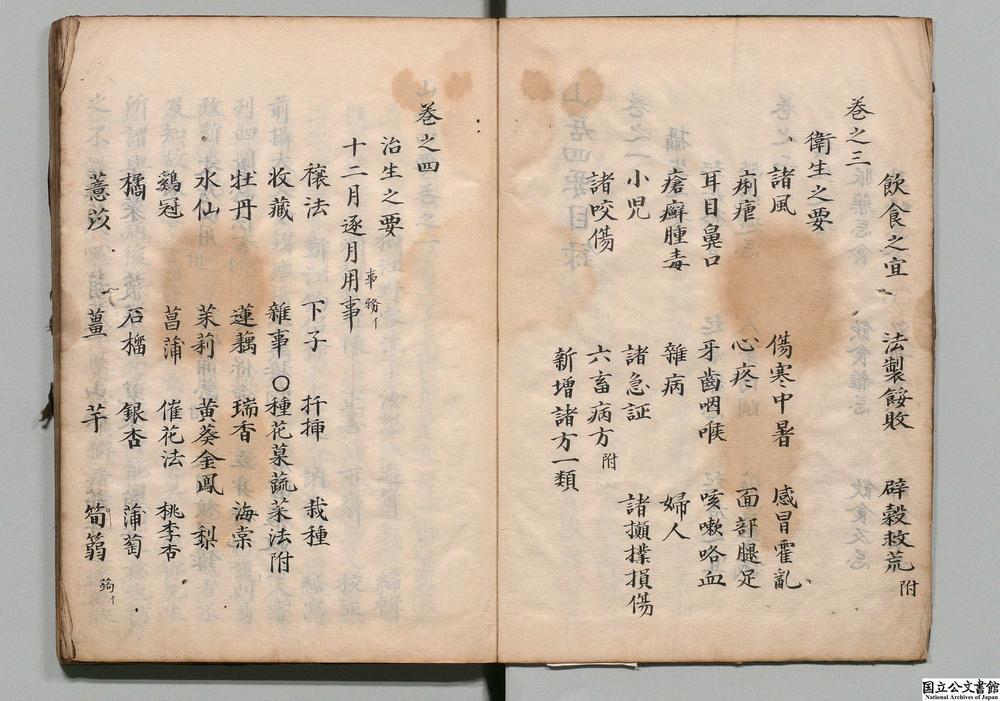 飲食之宜　法製餒敗　辟穀救荒附
卷之三
衛生之要
諸風　傷寒中暑　感冒霍亂
痢瘧　心疼　面部腿足
耳目鼻口　牙齒咽喉　咳嗽咯血
瘡癬腫毒　雜病　婦人
小児　諸急証　諸攧撲損傷
諸咬傷　六畜病方附
新增諸方一類
卷之四
治生之要
十二月逐月用事事務イ
禳法　下子　扦挿　栽種
收藏　雜事　〇種花菓蔬菜法附
牡丹　蓮藕　瑞香　海棠
水仙　茉莉　黃葵金鳳　梨
鷄冠　菖蒲　催花法　桃李杏
橘　石榴　銀杏　蒲萄
薏苡　薑　芋　筍
国立公文書館
National Archives of Japan